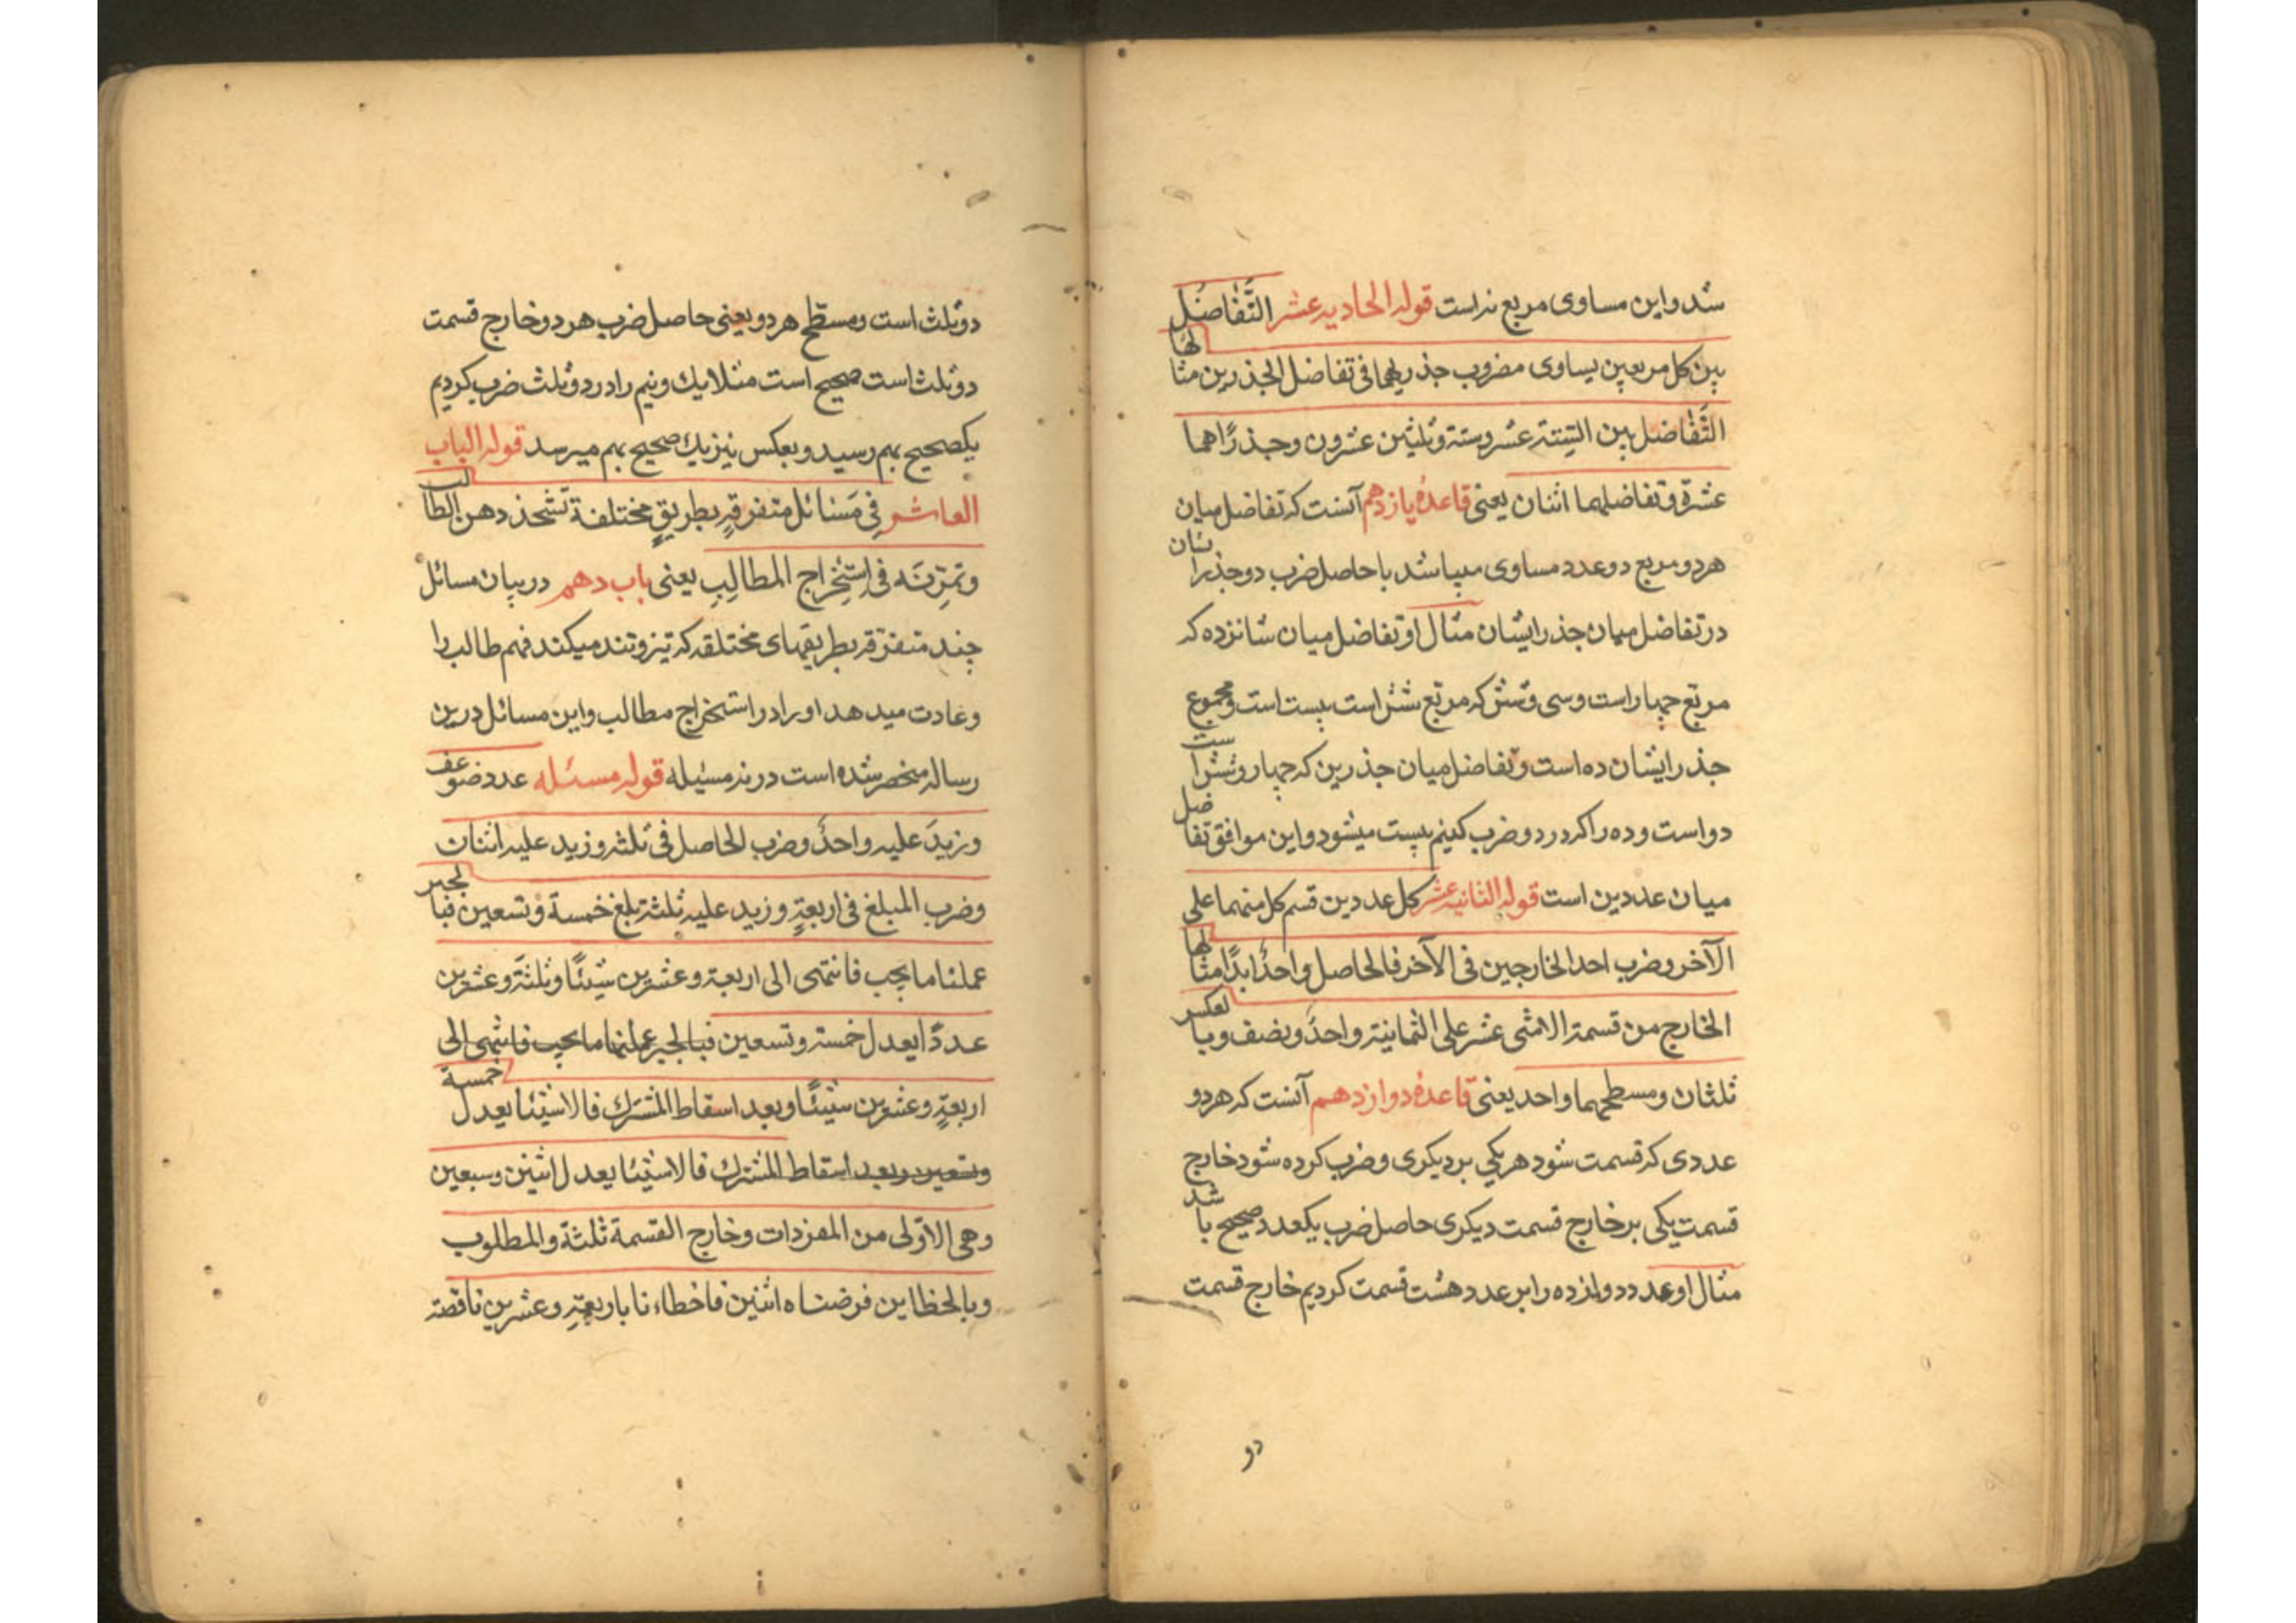 شد و این مساوی مربع نه است قوله الحادیه عشر التَّفاضُل
بین کل مربعین یساوی مضروب جذریهما فی تفاضل الجذرین مثالها
التَّفاضل بین الستة عشر وستة وثلثین عشرون وجذراهما
عشرة وتفاضلهما اثنان یعنی قاعدهٔ یازدهم آنست که تفاضل میان
هر دو مربع دو عدد مساوی میباشد با حاصل ضرب دو جذر ایشان
در تفاضل میان جذر ایشان مثال او تفاضل میان شانزده که
مربّع چهار است و سی و شش که مربّع شش است بیست است و مجموع
جذر ایشان ده است و تفاضل میان جذرین که چهار و شش است
دو است و ده را که در دو ضرب کنیم بیست میشود و این موافق تفاضل
میان عددین است قوله الثانیه عشر کل عددین قسم کل منهما علی
الآخر وضرب احد الخارجین فی الآخر فالحاصل واحدٌ ابدًا مثالها
الخارج من قسمة الاثنی عشر علی الثمانیة واحدٌ ونصف وبالعکس
ثلثان ومسطحهما واحد یعنی قاعدهٔ دوازدهم آنست که هر دو
عددی که قسمت شود هر یکی بر دیکری و ضرب کرده شود خارج
قسمت یکی بر خارج قسمت دیکری حاصل ضرب یکعدد صحیح باشد
مثال او عدد دوازده را بر عدد هشت قسمت کردیم خارج قسمت
دو
دو ثلث است و مسطّح هر دو یعنی حاصل ضرب هر دو خارج قسمت
دو ثلث است صحیح است مثلا یك و نیم را در دو ثلث ضرب کردیم
یکصحیح بهم رسید و بعکس نیز یك صحیح بهم میرسد قوله الباب
العاشر فِی مَسَائل متفرقةٍ بطریقٍ مختلفة تشحذ ذهن الطالب
وتمرّنَه فی استِخراج المطالِبِ یعنی باب دهم در بیان مسائل
چند متفرّقه بطریقهای مختلقه که تیز و تند میکند فهم طالب را
و عادت میدهد او را در استخراج مطالب و این مسائل درین
رساله منحصر شده است در نه مسئیله قوله مسئله عدد ضوعف
وزیدَ علیه واحدٌ وضرب الحاصل فی ثلثه وزید علیه اثنان
وضرب المبلغ فی اربعةٍ وزید علیه ثلثة بلغ خمسة وتسعین فبالجبر
عملنا ما یجب فانتهی الی اربعة وعشرین شیئًا وثلثةً وعشرین
عددًا یعدل خمسة وتسعین فبالجبر عملنا ما یجب فانتهی الی
اربعةٍ وعشرین شیئًا وبعد اسقاط المشترك فالاشیئا یعدل خمسة
وتسعین وبعد اسقاط المشترك فالاشیئا یعدل اثنین وسبعین
وهی الاوّلی من المفردات وخارج القسمة ثلثةً والمطلوب
وبالخطاین فرضناه اثنین فاخطاءنا باربعةٍ وعشرین ناقصة